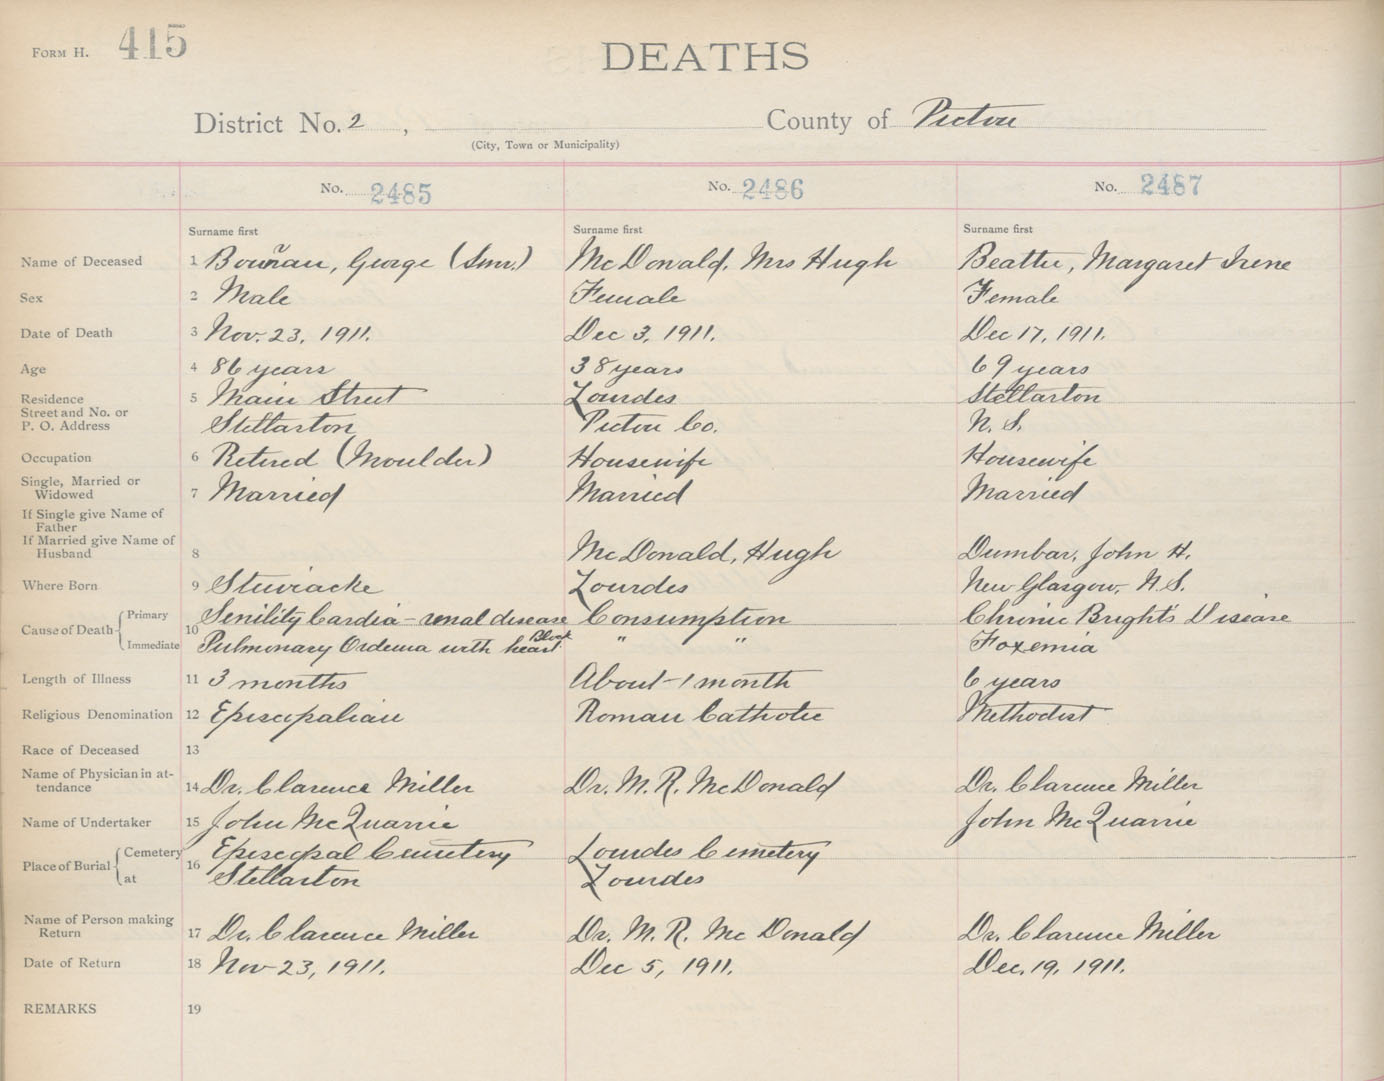 FORM H. 415
DEATHS
District No. 2 , County of Pictou
(City, Town or Municipality)
No. 2485 No. 2486 No. 2487
Surname first Surname first Surname first
Name of Deceased 1 George (Senr.) McDonald, Mrs Hugh Beattie, Margaret Irene
Sex 2 Male Female Female
Date of Death 3 Nov. 23, 1911. Dec 3, 1911. Dec 17, 1911.
Age 4 86 years 38 years 69 years
Residence 5 Main Street Lourdes Stellarton
Street and No. or
P. O. Address Stellarton Pictou Co. N. S.
Occupation 6 Retired (Moulder) Housewife Housewife
Single, Married or
Widowed 7 Married Married Married
If Single give Name of
Father
If Married give Name of
Husband 8 McDonald, Hugh Dumbar, John H.
Where Born 9 Stewiacke Lourdes New Glasgow, N.S.
Cause of Death Primary 10 Senility Cardia-renal disease Consumption Chronic Bright's Disease
Immediate Pulmonary Oedema with heart Block. " " Toxemia
Length of Illness 11 3 months About 1 month 6 years
Religious Denomination 12 Episcopalian Roman Catholic Methodist
Race of Deceased 13
Name of Physician in at-
tendance 14 Dr. Clarence Miller Dr. M. R. McDonald Dr. Clarence Miller
Name of Undertaker 15 John McQuarrie John McQuarrie
Place of Burial Cemetery 16 Episcopal Cemetery Lourdes Cemetery
at Stellarton Lourdes
Name of Person making
Return 17 Dr. Clarence Miller Dr. M. R. Mc Donald Dr. Clarence Miller
Date of Return 18 Nov 23, 1911. Dec 5, 1911. Dec. 19, 1911.
REMARKS 19